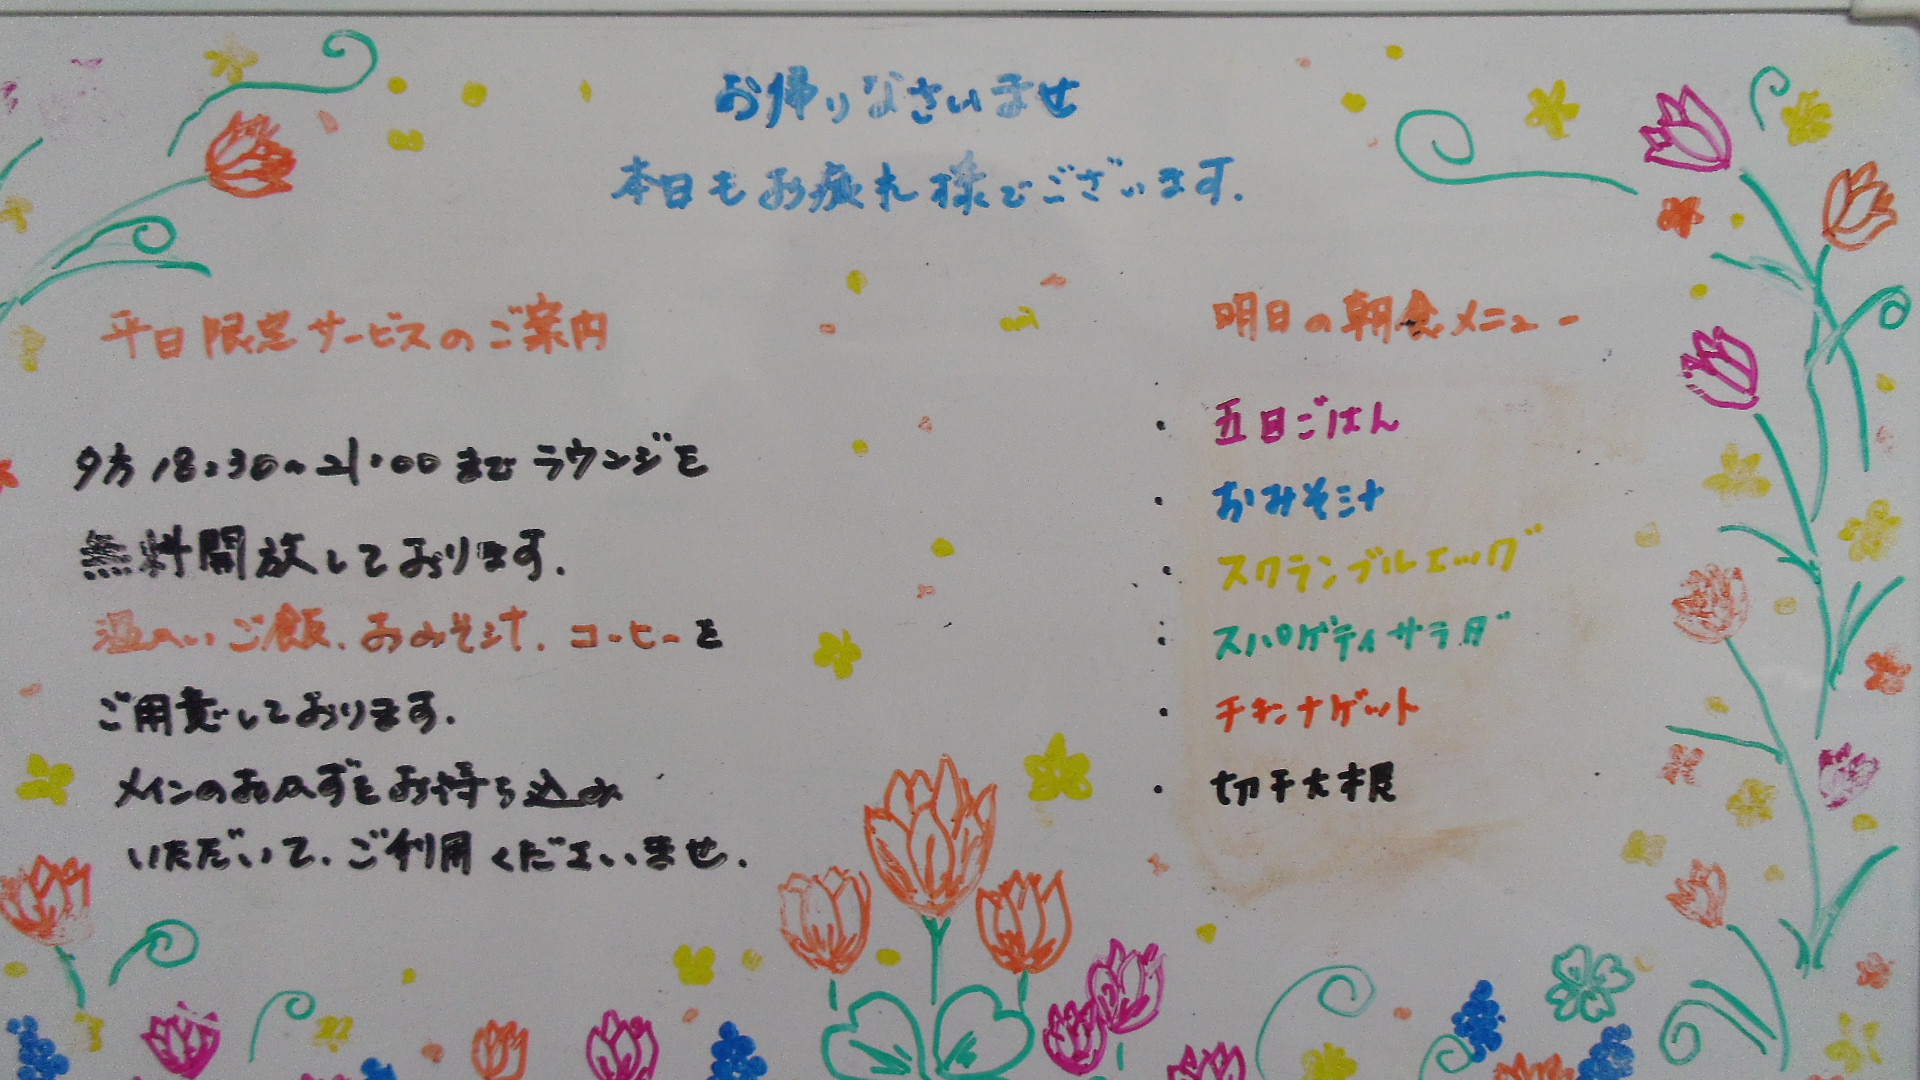 お帰りなさいませ
本日もお疲れ様でございます.
平日限定サービスのご案内
夕方18:30~21:00までラウンジを
無料開放しております.
温かいご飯.おみそ汁.コーヒーを
ご用意しております.
メインのおかずをお持ち込み
いただいて.ご利用くださいませ.
明日の朝食メニュー
・五日ごはん
・おみそ汁
・スクランブルエッグ
・スパゲティサラダ
・チキンナゲット
・切干大根